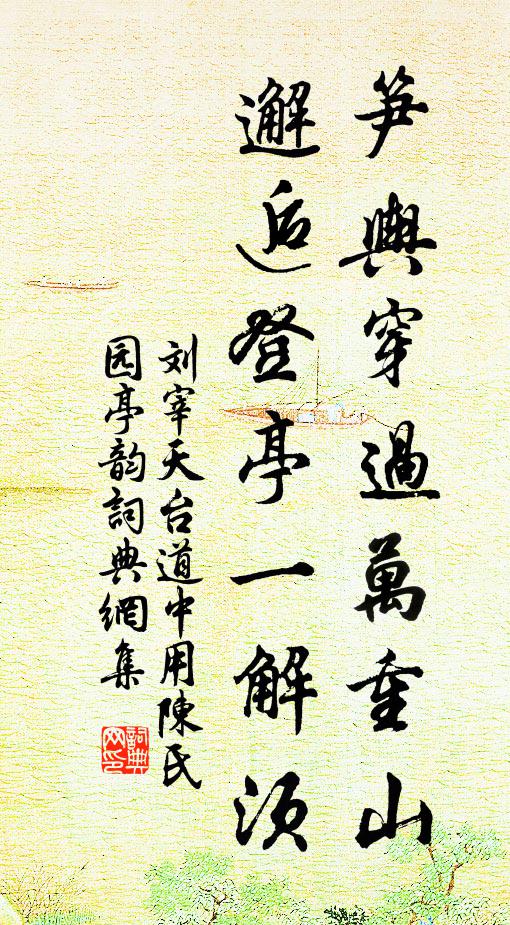 笋輿穿過萬重山
邂逅登亭一解顏
刘宰天台道中用陳氏
园亭韵詞典網集
詞典
网印